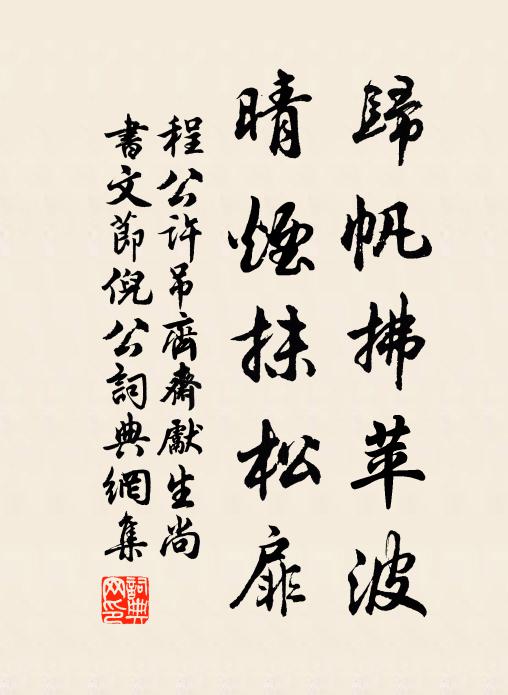 歸帆拂苹波
晴煙抹松扉
程公許吊齊齋獻生尚
書文節倪公詞典網集
詞典網印